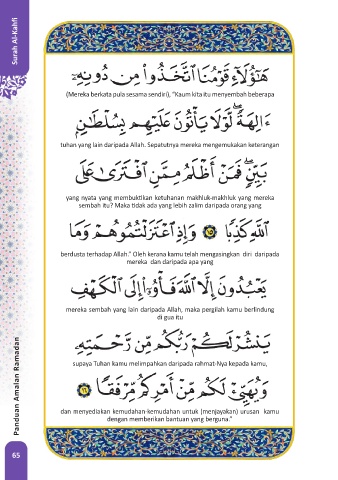 Surah Al-Kahfi
هَٰٓؤُلَآءِ قَوْمُنَا ٱتَّخَذُوا۟ مِن دُونِهِۦٓ
(Mereka berkata pula sesama sendiri), "Kaum kita itu menyembah beberapa
ءَالِهَةً ۖ لَّوْلَا يَأْتُونَ عَلَيْهِم بِسُلْطَٰنٍۭ
tuhan yang lain daripada Allah. Sepatutnya mereka mengemukakan keterangan
بَيِّنٍ ۖ فَمَنْ أَظْلَمُ مِمَّنِ ٱفْتَرَىٰ عَلَى
yang nyata yang membuktikan ketuhanan makhluk-makhluk yang mereka
sembah itu? Maka tidak ada yang lebih zalim daripada orang yang
ٱللَّهِ كَذِبًا ١٥ وَإِذِ ٱعْتَزَلْتُمُوهُمْ وَمَا
berdusta terhadap Allah." Oleh kerana kamu telah mengasingkan diri daripada
mereka dan daripada apa yang
يَعْبُدُونَ إِلَّا ٱللَّهَ فَأْوُۥٓا۟ إِلَى ٱلْكَهْفِ
mereka sembah yang lain daripada Allah, maka pergilah kamu berlindung
di gua itu
يَنشُرْ لَكُمْ رَبُّكُم مِّن رَّحْمَتِهِۦ
supaya Tuhan kamu melimpahkan daripada rahmat-Nya kepada kamu,
وَيُهَيِّئْ لَكُم مِّنْ أَمْرِكُم مِّرْفَقًا ١٦
dan menyediakan kemudahan-kemudahan untuk (menjayakan) urusan kamu
dengan memberikan bantuan yang berguna."
Panduan Amalan Ramadan
65